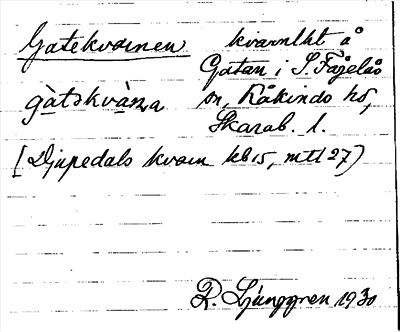 Gatekvarnen kvarnlht å
Gatan i S. Fågelås
gàtəkvàṇa sn, Kåkinds hd,
Skarab. l.
[Djupedals kvarn kb 15, mtl 27)
R. Ljunggren 1930